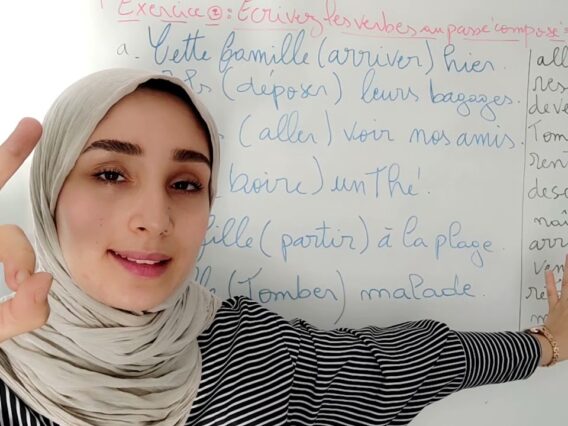 Exercice ②: Ecrivez les verbes au passé composé:
a. Cette famille (arriver) hier.
(déposer) leurs bagages.
(aller) voir nos amis.
boire) un Thé.
fille (partir) à la plage.
(Tomber) malade.
all
res
deve
Tom
rent
desc
naî
arr
ven